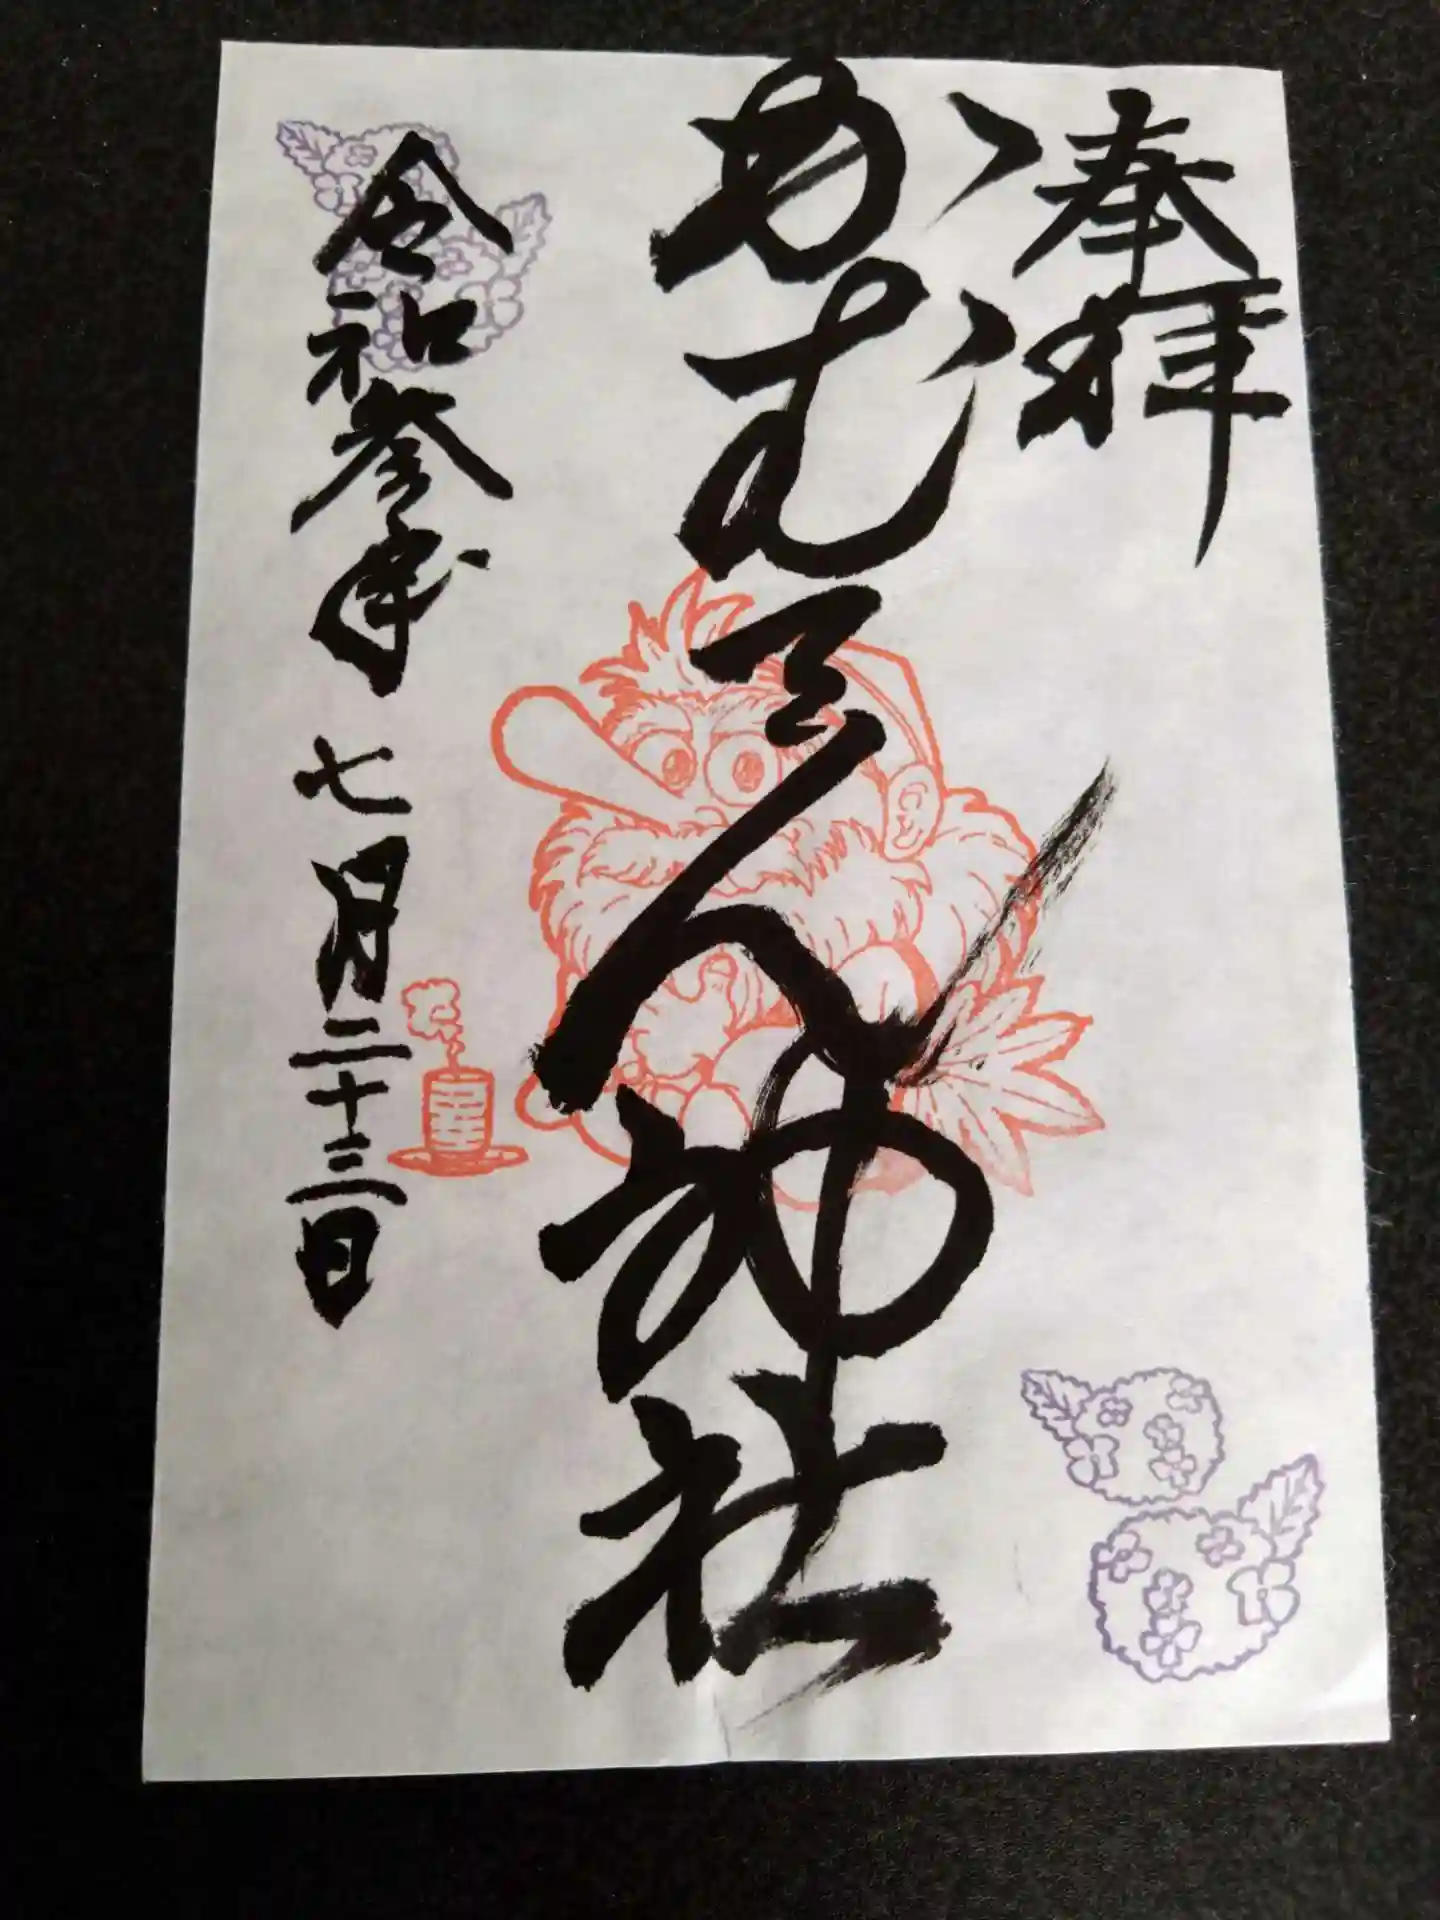 奉拝
かむてん神社
令和参年 七月二十三日